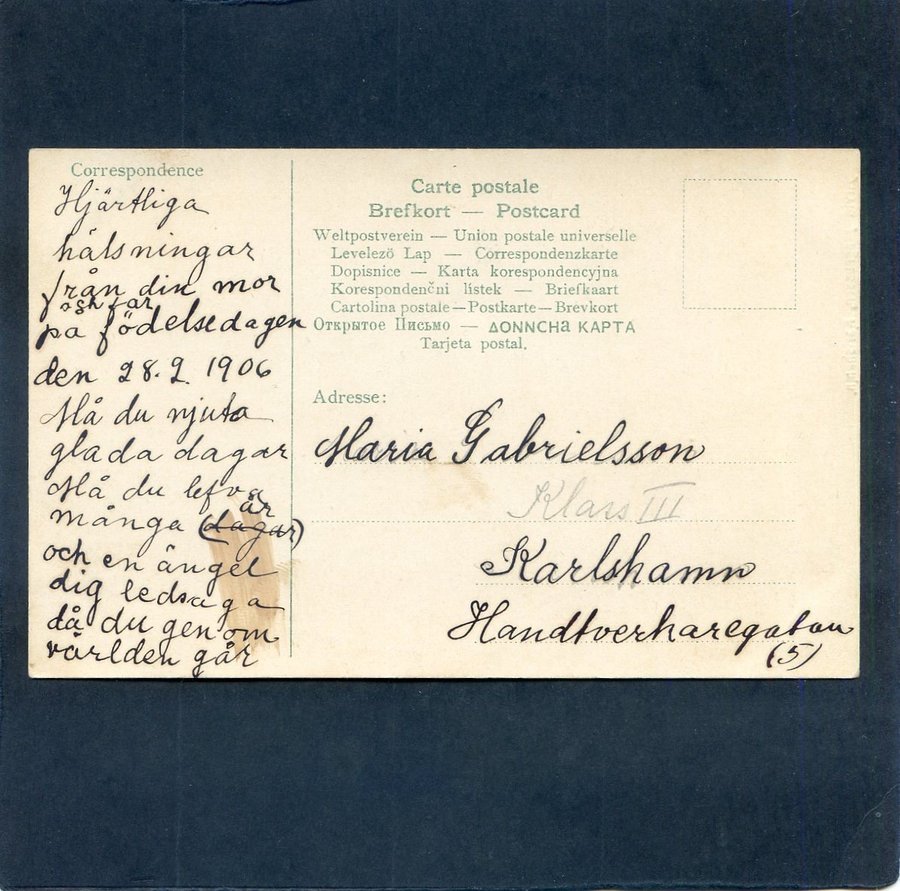 Correspondence
Hjärtliga
hälsningar
från din mor
och far
på födelsedagen
den 28.2. 1906
Må du njuta
glada dagar
Må du lefva
år
många (dagar)
och en ängel
dig ledsaga
då du genom
världen går
Carte postale
Brefkort — Postcard
Weltpostverein — Union postale universelle
Levelező Lap — Correspondenzkarte
Dopisnice — Karta korespondencyjna
Korespondenční lístek — Briefkaart
Cartolina postale — Postkarte — Brevkort
Открытое Письмо — ΔONNCHa KAPTA
Tarjeta postal.
Adresse:
Maria Gabrielsson
Klass III
Karlshamn
Handtverkaregatan
(5)